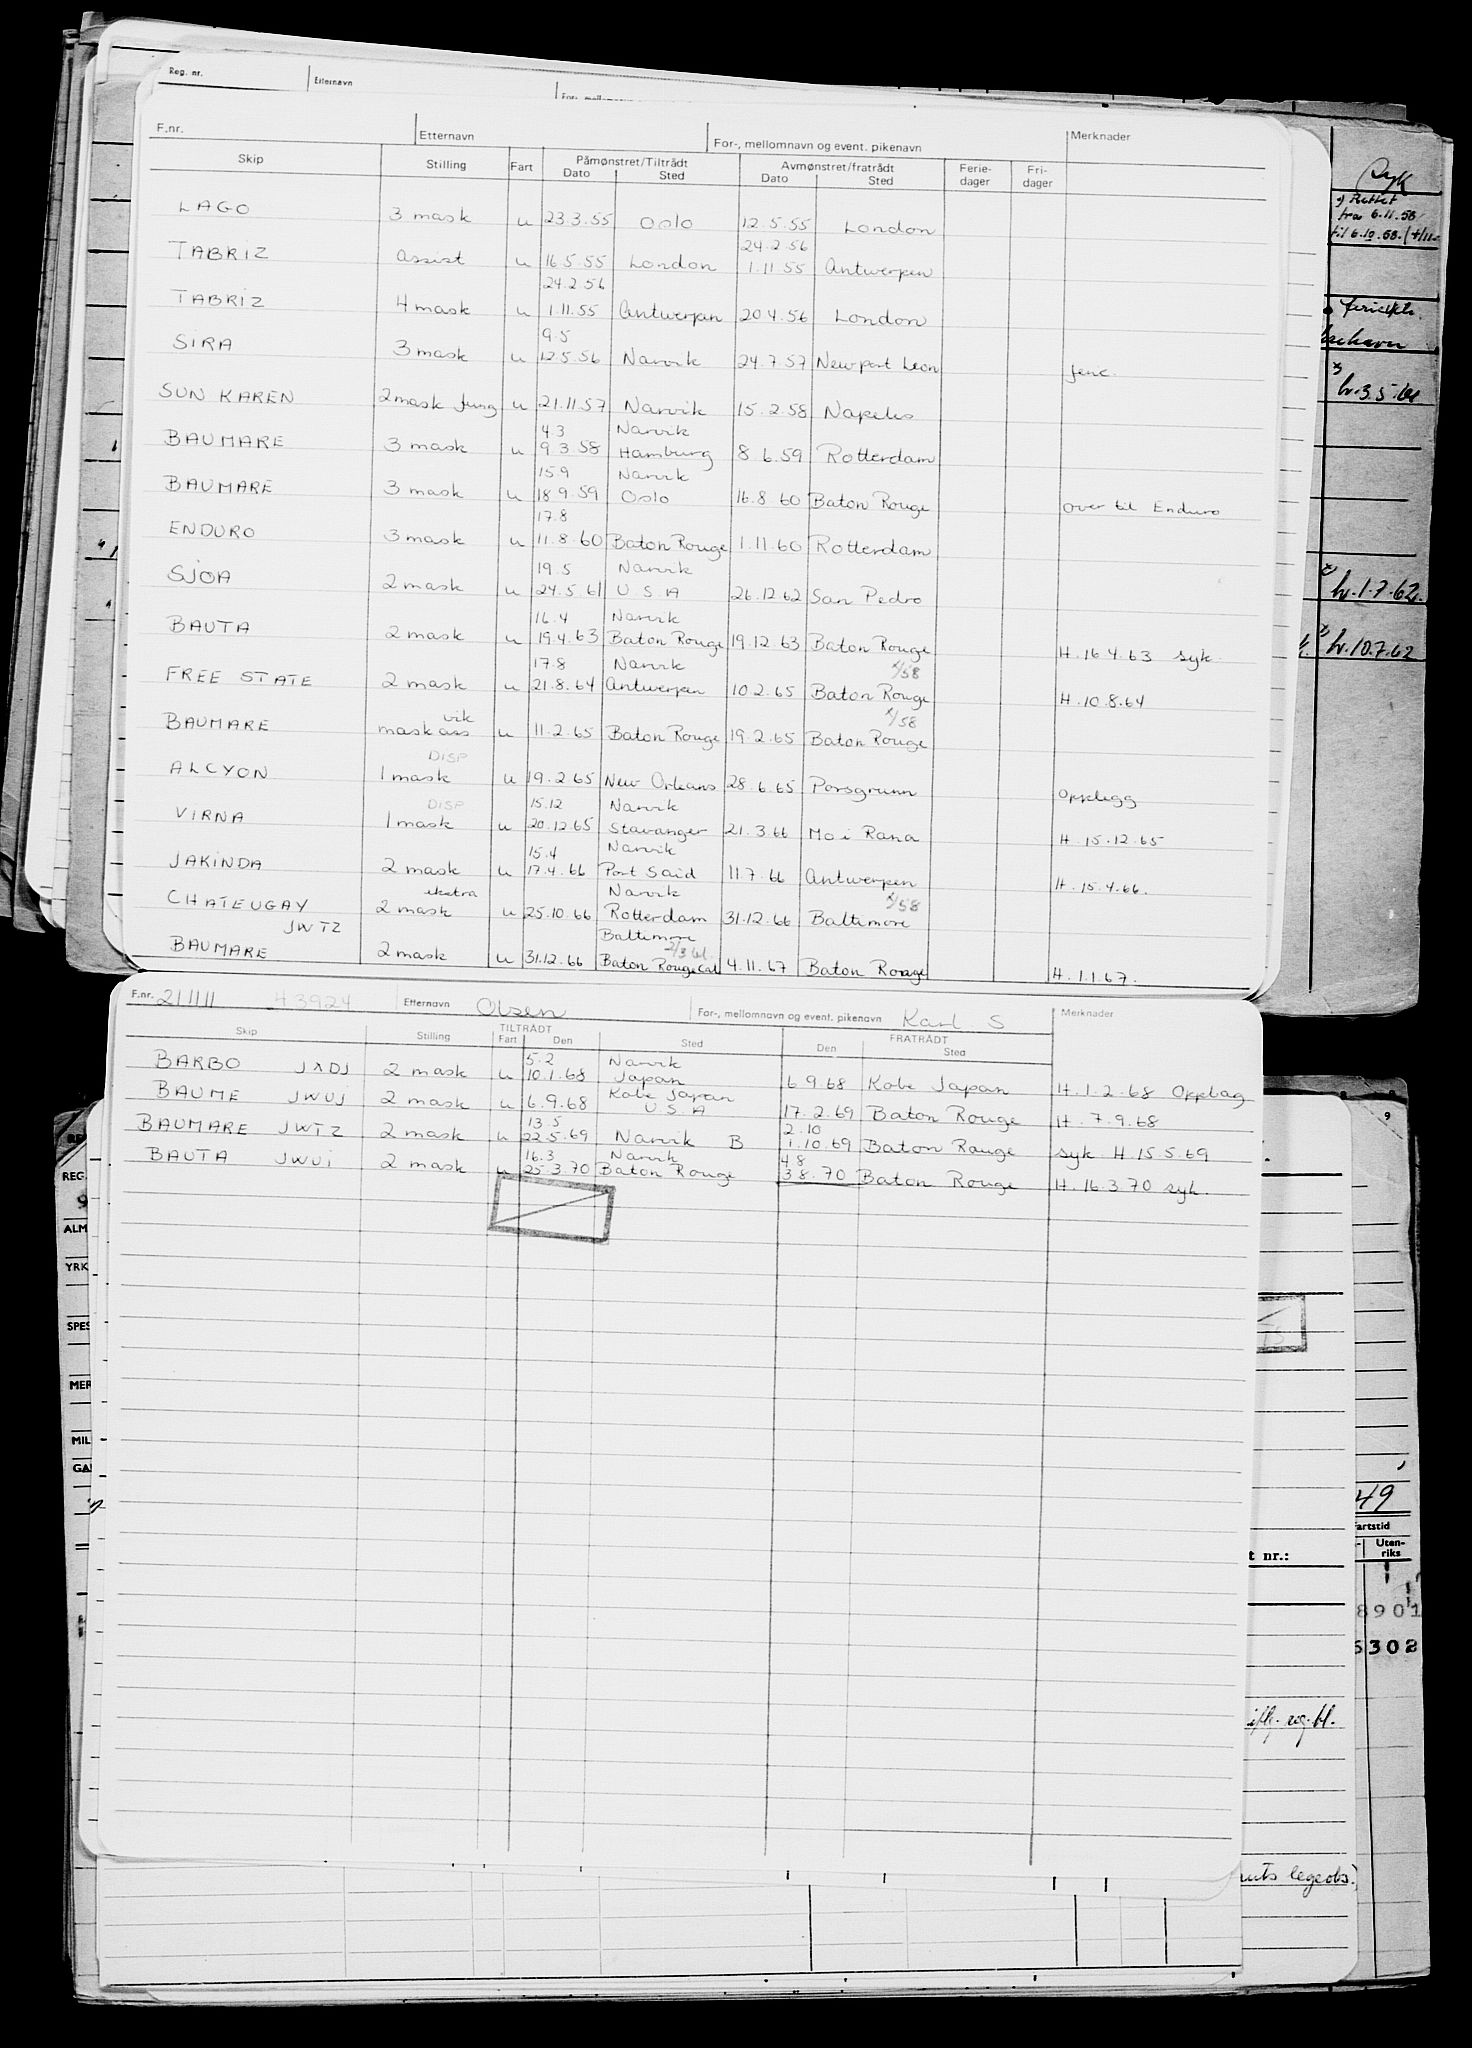 Reg. nr. Etternavn
F.nr. Etternavn For-, mellomnavn og event. pikenavn Merknader
Skip Stilling Fart Påmønstret/Tiltrådt Dato Sted Avmønstret/fratrådt Dato Sted Ferie-dager Fri-dager
LAGO 3 mask u 23.3.55 Oslo 12.5.55 London
24.2.56
TABRIZ assist u 16.5.55 London 1.11.55 Antwerpen
24.2.56
TABRIZ 4 mask u 1.11.55 Antwerpen 20.4.56 London
9.5
SIRA 3 mask u 12.5.56 Narvik 24.7.57 Newport Leon ferie.
SUN KAREN 2 mask fung u 21.11.57 Narvik 15.2.58 Napoles
4.3 Narvik
BAUMARE 3 mask u 9.3.58 Hamburg 8.6.59 Rotterdam
15.9 Narvik
BAUMARE 3 mask u 18.9.59 Oslo 16.8.60 Baton Rouge over til Enduro
17.8
ENDURO 3 mask u 11.8.60 Baton Rouge 1.11.60 Rotterdam
19.5 Narvik
SJOA 2 mask u 24.5.61 U.S.A 26.12.62 San Pedro
16.4 Narvik
BAUTA 2 mask u 19.4.63 Baton Rouge 19.12.63 Baton Rouge H. 16.4.63 syk.
17.8 Narvik x/58
FREE STATE 2 mask u 21.8.64 Antwerpen 10.2.65 Baton Rouge H. 10.8.64
vik x/58
BAUMARE mask ass u 11.2.65 Baton Rouge 19.2.65 Baton Rouge
DISP
ALCYON 1 mask u 19.2.65 New Orleans 28.6.65 Porsgrunn Opplegg
DISP 15.12 Narvik
VIRNA 1 mask u 20.12.65 Stavanger 21.3.66 Mo i Rana H. 15.12.65
15.4 Narvik
JAKINDA 2 mask u 17.4.66 Port Said 11.7.66 Antwerpen H. 15.4.66.
ekstra Narvik x/58
CHATEUGAY 2 mask u 25.10.66 Rotterdam 31.12.66 Baltimore
JWTZ Baltimore
BAUMARE 2 mask u 31.12.66 Baton Rouge 4.11.67 Baton Rouge H. 1.1.67.
F.nr. 211111 43924 Etternavn Olsen For-, mellomnavn og event. pikenavn Karl S Merknader
Skip Stilling TILTRÅDT Fart Den Sted FRATRÅDT Den Sted
5.2 Narvik
BARBO JXDJ 2 mask u 10.1.68 Japan 6.9.68 Kobe Japan H. 1.2.68 Opplag
Kobe Japan
BAUME JWUJ 2 mask u 6.9.68 U.S.A 17.2.69 Baton Rouge H. 7.9.68
13.5 2.10
BAUMARE JWTZ 2 mask u 22.5.69 Narvik B 1.10.69 Baton Rouge syk H. 15.5.69
16.3 Narvik 4.8
BAUTA JWUI 2 mask u 25.3.70 Baton Rouge 3.8.70 Baton Rouge H. 16.3.70 syk.
Syk
x) Rettet
fra 6.11.58
til 6.10.58.
hr. 1.7.62.
hr. 10.7.62
REG.
ALM
YRK
SPES
MER
MIL
49
artstid
Uten-riks
t nr.:
8901
5302